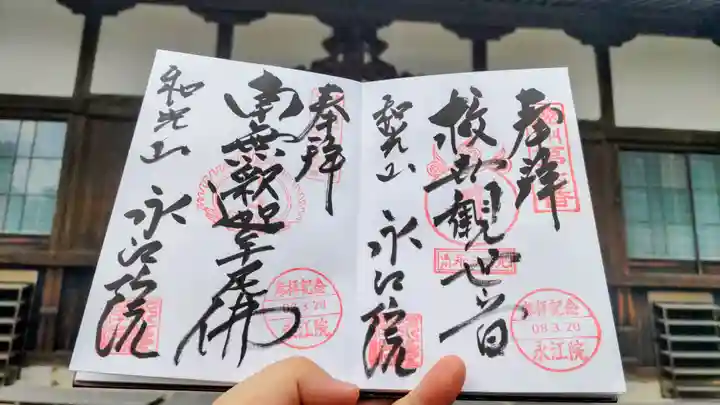 奉拝
救世観世音
和光山 永江院
参拝記念
08.3.20
永江院
奉拝
南無釈迦牟尼佛
和光山 永江院
参拝記念
08.3.20
永江院